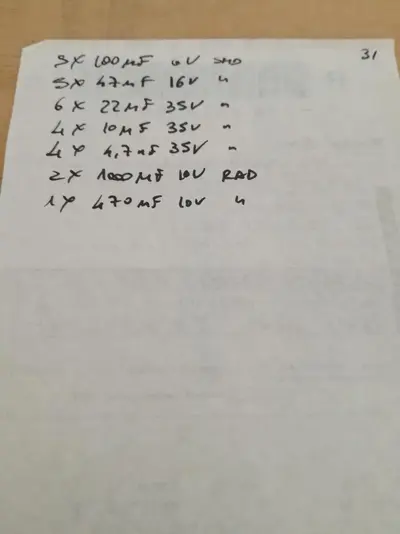 31
3X 100µF 6V SMD
3X 47µF 16V "
6X 22µF 35V "
4X 10µF 35V "
4X 4,7µF 35V "
2X 1000µF 10V RAD
1X 470µF 10V "